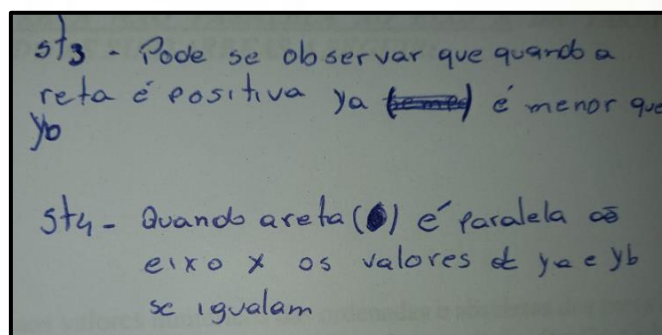 st3 - Pode se observar que quando a
reta é positiva ya é menor que
yb
st4 - Quando a reta () é paralela ao
eixo x os valores de ya e yb
se igualam